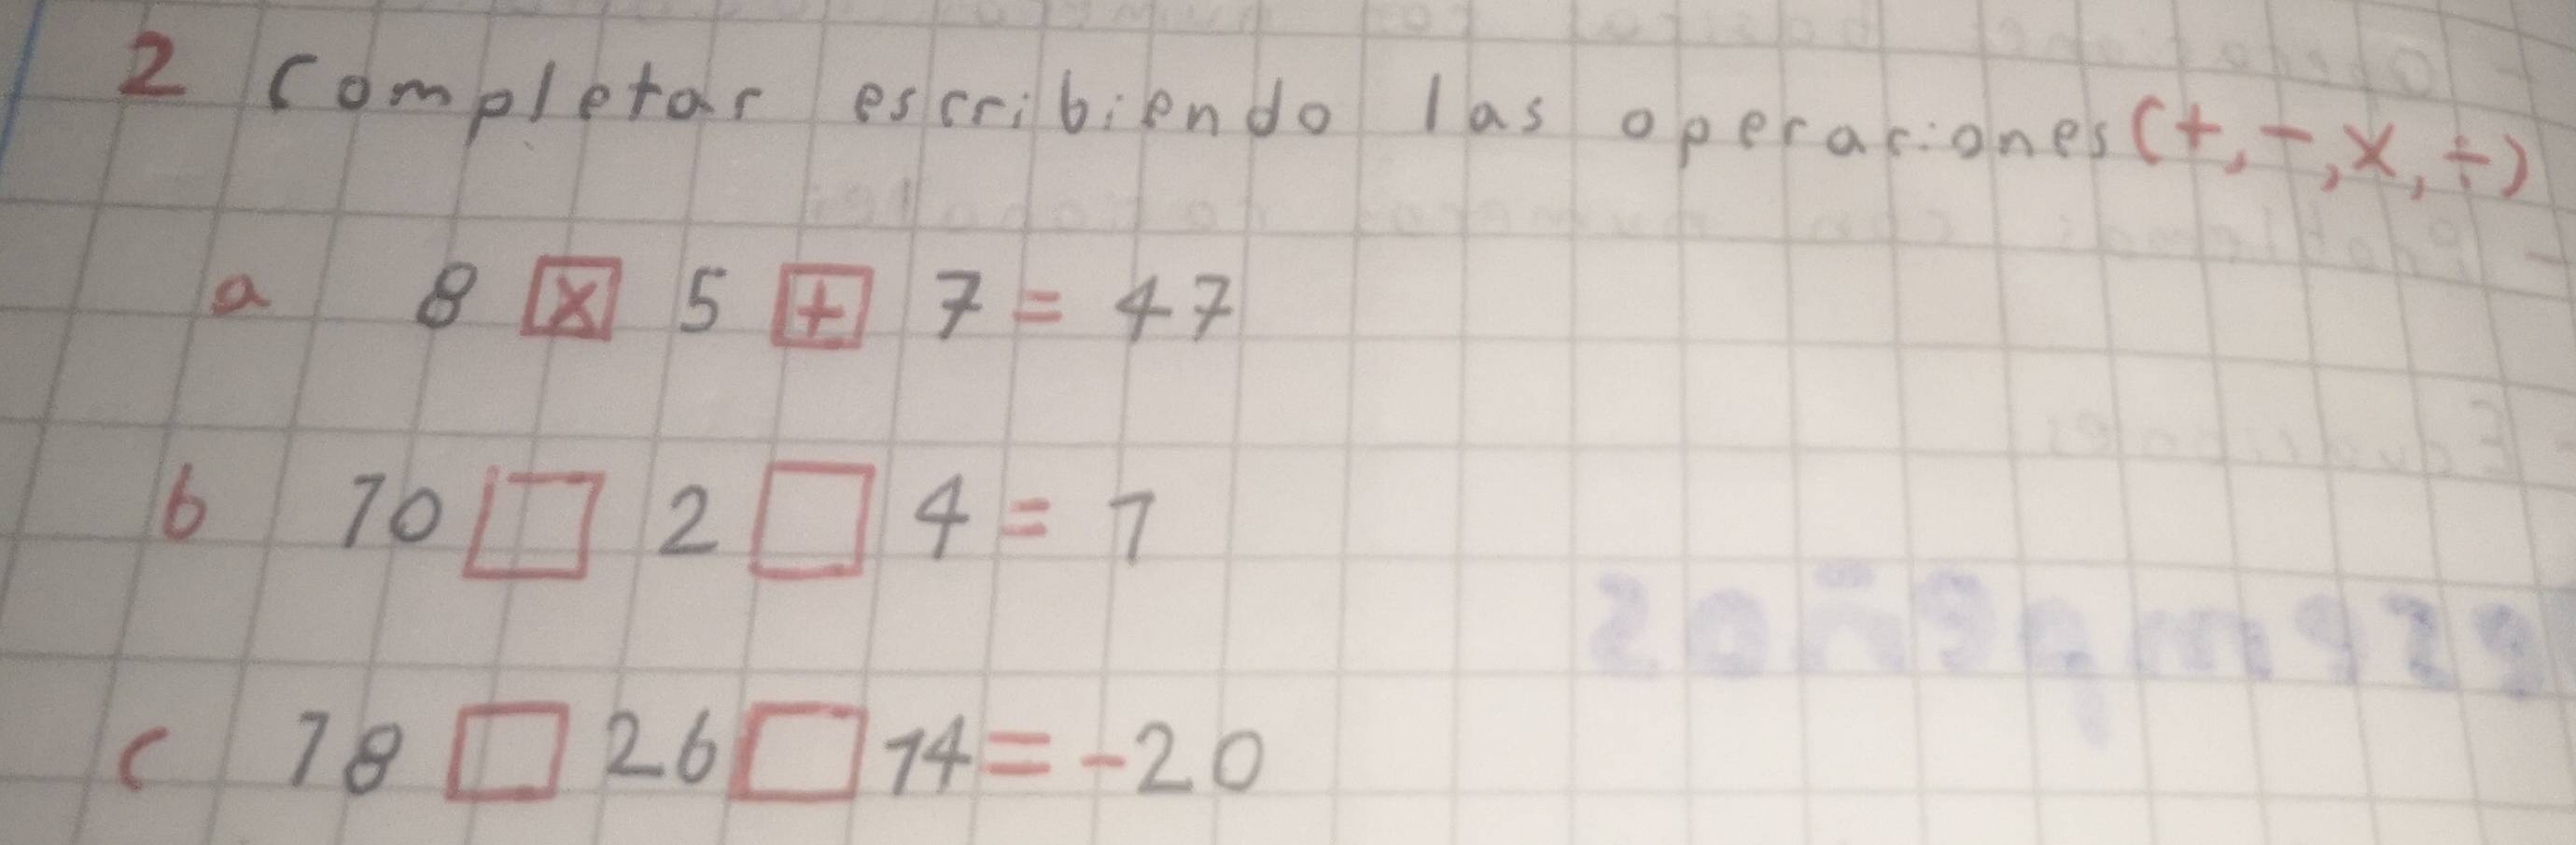 2 Completar escribiendo las operaciones (+, -, x, ÷)
a 8 x 5 + 7 = 47
b 10 □ 2 □ 4 = 1
c 18 □ 26 □ 14 = -20